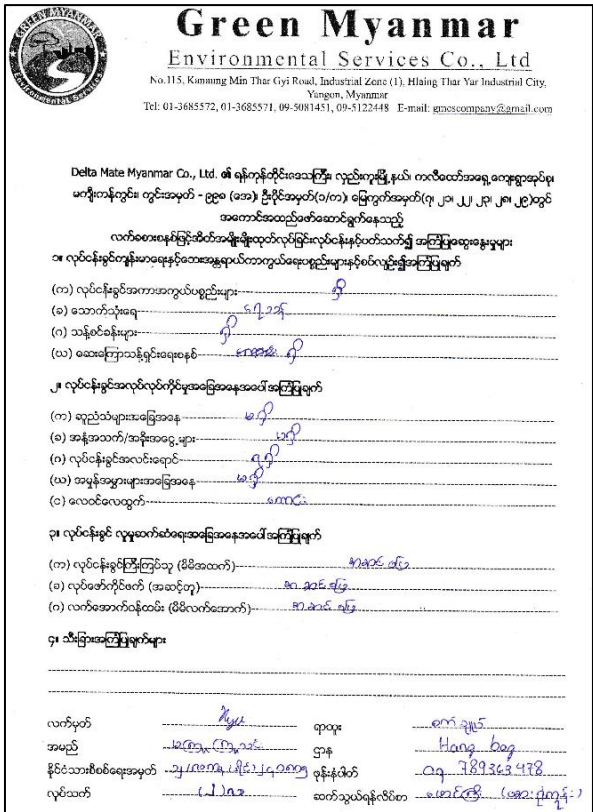 GREEN MYANMAR
Environmental Services
Green Myanmar
Environmental Services Co., Ltd
No.115, Kanaung Min Thar Gyi Road, Industrial Zone (1), Hlaing Thar Yar Industrial City,
Yangon, Myanmar
Tel: 01-3685572, 01-3685571, 09-5081451, 09-5122448 E-mail: gmescompany@gmail.com
Delta Mate Myanmar Co., Ltd. ၏ ရန်ကုန်တိုင်းဒေသကြီး၊ လှည်းကူးမြို့နယ်၊ ကလီထော်အရှေ့ကျေးရွာအုပ်စု၊
မကျီးကန်ကွင်း၊ ကွင်းအမှတ် - ၉၉၈ (အေ)၊ ဦးပိုင်အမှတ်(၁/က)၊ မြေကွက်အမှတ်(၇၊ ၂၁၊ ၂၂၊ ၂၃၊ ၂၈၊ ၂၉)တွင်
အကောင်အထည်ဖော်ဆောင်ရွက်နေသည့်
လက်ခစားစနစ်ဖြင့်အိတ်အမျိုးမျိုးထုတ်လုပ်ခြင်းလုပ်ငန်းနှင့်ပတ်သက်၍ အကြံပြုဆွေးနွေးမှုများ
၁။ လုပ်ငန်းခွင်ကျန်းမာရေးနှင့်ဘေးအန္တရာယ်ကာကွယ်ရေးပစ္စည်းများနှင့်စပ်လျဉ်း၍အကြံပြုချက်
(က) လုပ်ငန်းခွင်အကာအကွယ်ပစ္စည်းများ ရှိ
(ခ) သောက်သုံးရေ ရေသန့်
(ဂ) သန့်စင်ခန်းများ ရှိ
(ဃ) ဆေးကြောသန့်ရှင်းရေးစနစ် ကောင်း ရှိ
၂။ လုပ်ငန်းခွင်အလုပ်လုပ်ကိုင်မှုအခြေအနေအပေါ် အကြံပြုချက်
(က) ဆူညံသံများအခြေအနေ မရှိ
(ခ) အနံ့အသက်/အခိုးအငွေ့များ မရှိ
(ဂ) လုပ်ငန်းခွင်အလင်းရောင် ရရှိ
(ဃ) အမှုန်အမွှားများအခြေအနေ မရှိ
(င) လေဝင်လေထွက် ကောင်း
၃။ လုပ်ငန်းခွင် လူမှုဆက်ဆံရေးအခြေအနေအပေါ် အကြံပြုချက်
(က) လုပ်ငန်းခွင်ကြီးကြပ်သူ (မိမိအထက်) အဆင်ပြေ
(ခ) လုပ်ဖော်ကိုင်ဖက် (အဆင့်တူ) အဆင်ပြေ
(ဂ) လက်အောက်ဝန်ထမ်း (မိမိလက်အောက်) အဆင်ပြေ
၄။ သီးခြားအကြံပြုချက်များ
လက်မှတ် ရာထူး စက်ချုပ်
အမည် ဌာန Hang bag
နိုင်ငံသားစိစစ်ရေးအမှတ် ဖုန်းနံပါတ် 09 789363478
လုပ်သက် ဆက်သွယ်ရန်လိပ်စာ